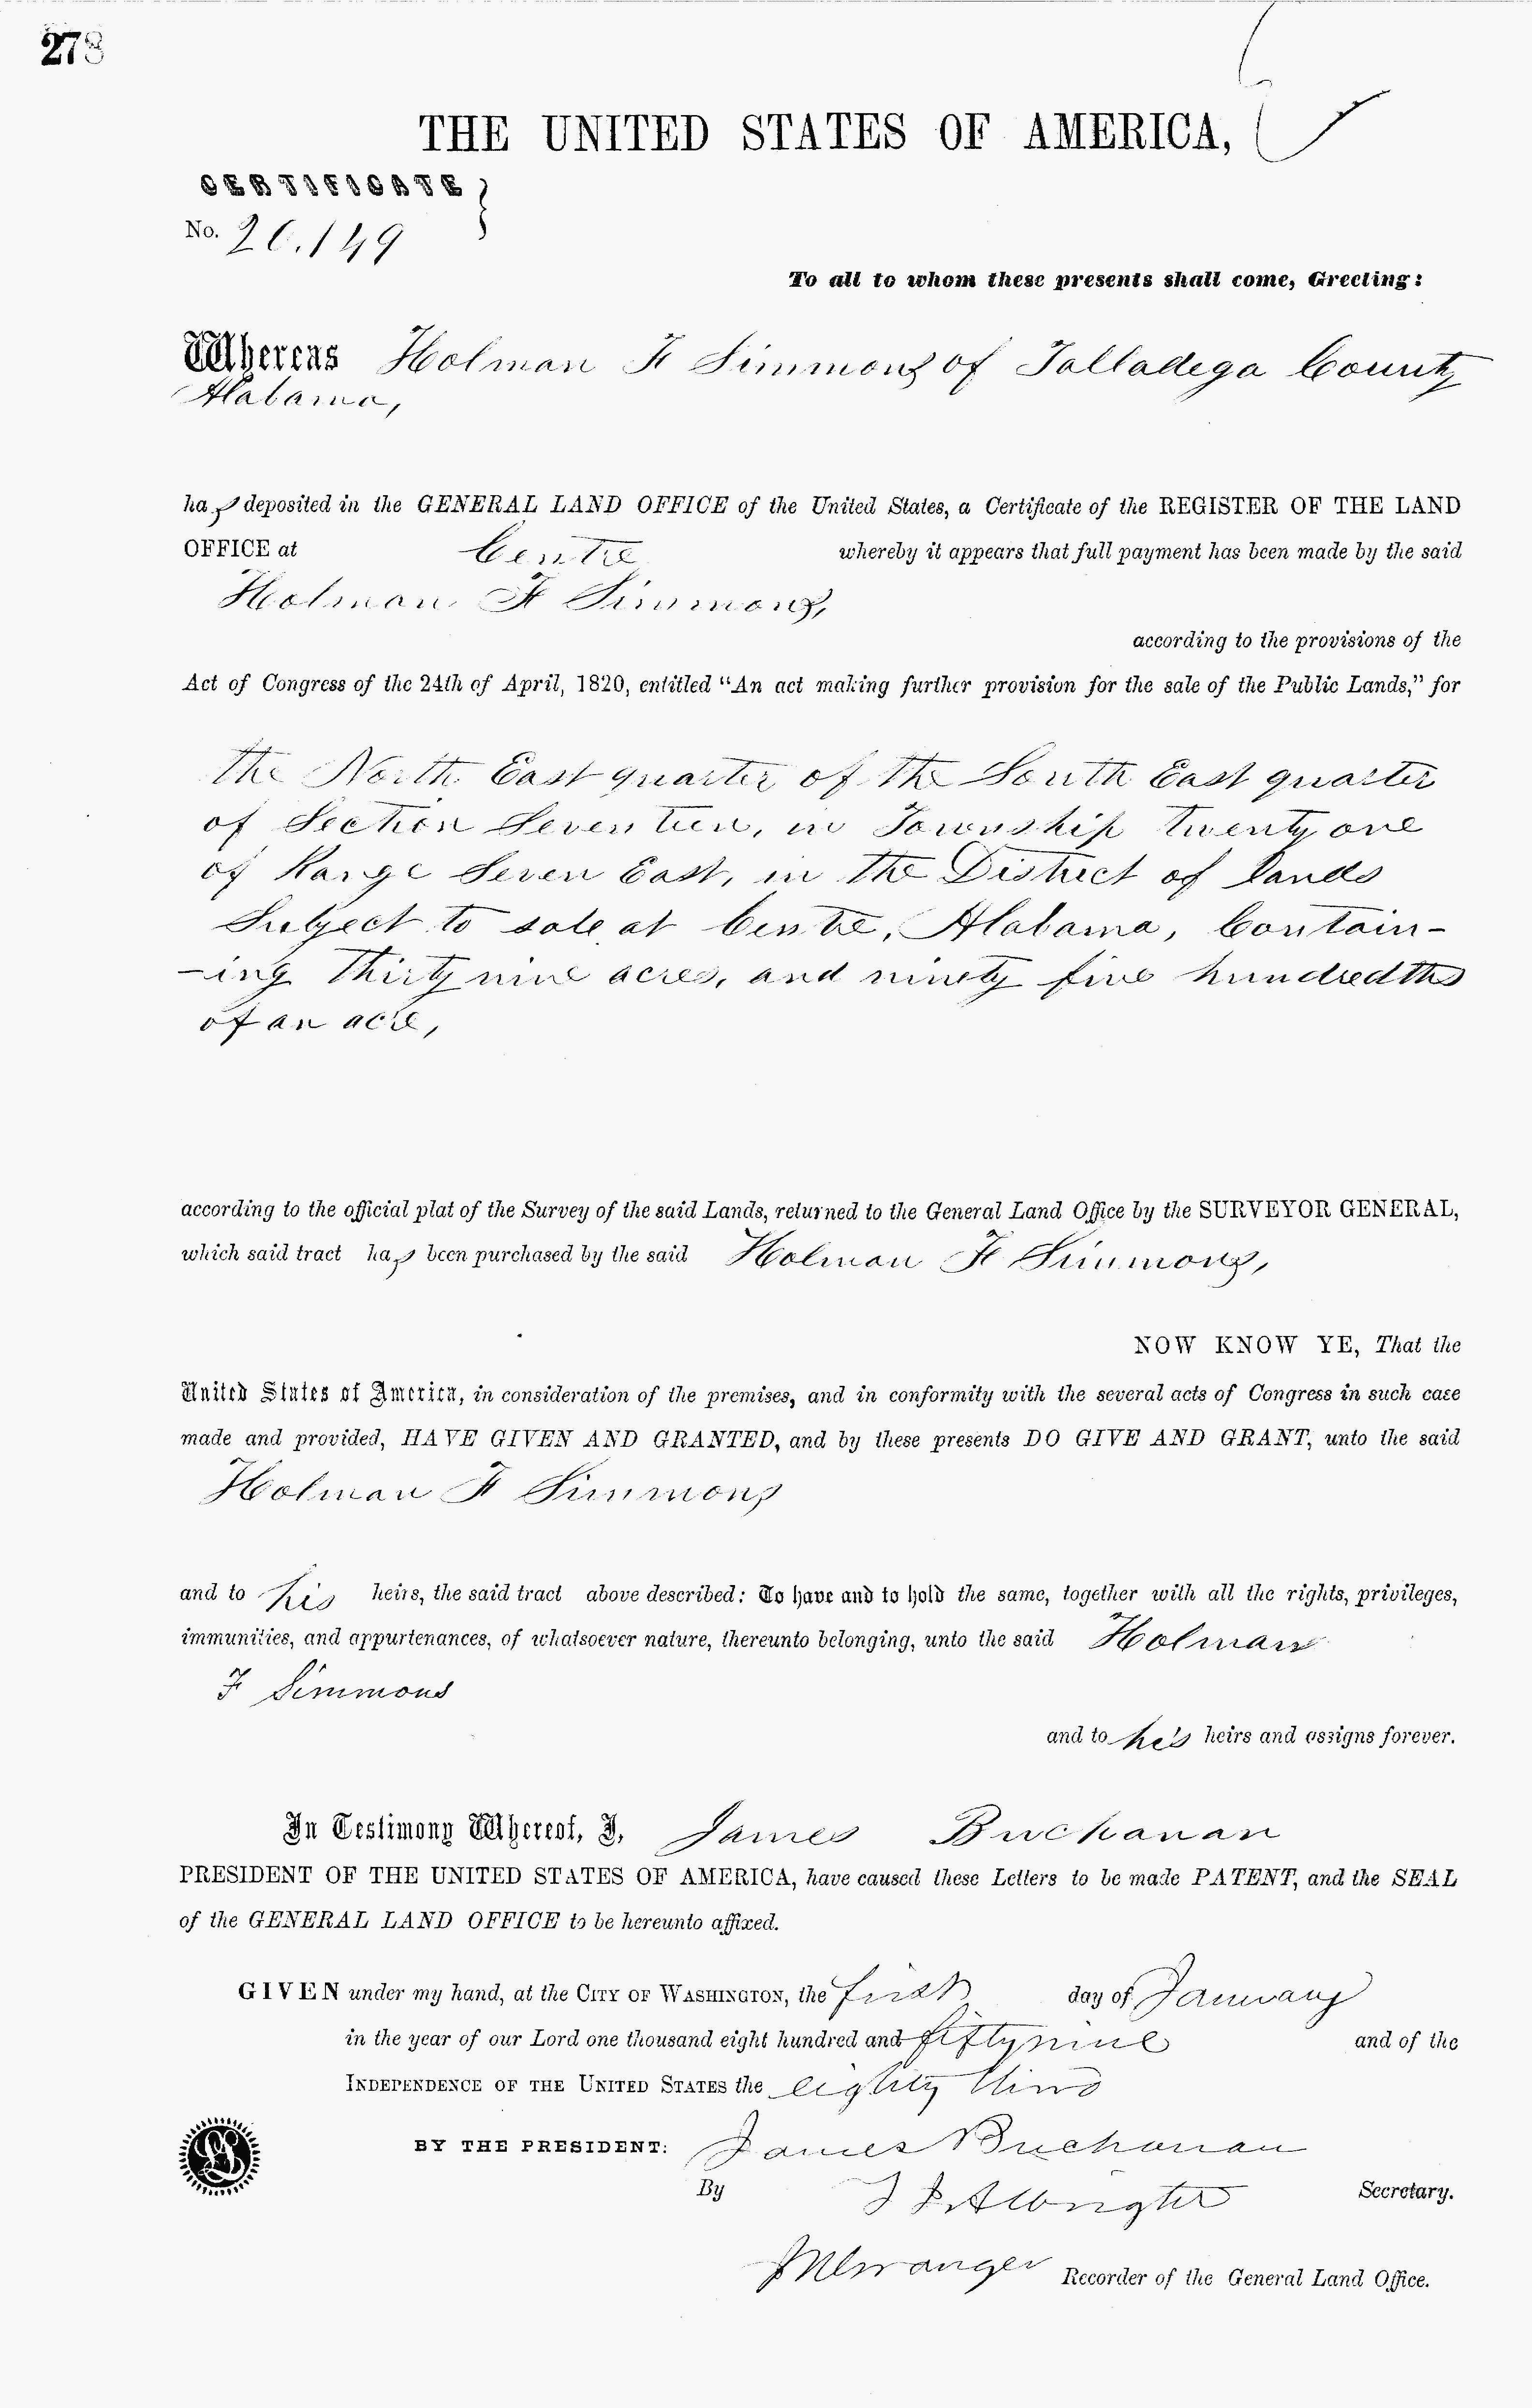 278
THE UNITED STATES OF AMERICA,
CERTIFICATE
No. 26.149
To all to whom these presents shall come, Greeting:
Whereas Holman F Simmons of Talladega County
Alabama,
has deposited in the GENERAL LAND OFFICE of the United States, a Certificate of the REGISTER OF THE LAND
OFFICE at Centre whereby it appears that full payment has been made by the said
Holman F Simmons,
according to the provisions of the
Act of Congress of the 24th of April, 1820, entitled "An act making further provision for the sale of the Public Lands," for
the North East quarter of the South East quarter
of Section Seventeen, in Township Twenty one
of Range Seven East, in the District of lands
Subject to sale at Centre, Alabama, Contain-
-ing Thirty nine acres, and ninety five hundredths
of an acre,
according to the official plat of the Survey of the said Lands, returned to the General Land Office by the SURVEYOR GENERAL,
which said tract has been purchased by the said Holman F Simmons,
NOW KNOW YE, That the
United States of America, in consideration of the premises, and in conformity with the several acts of Congress in such case
made and provided, HAVE GIVEN AND GRANTED, and by these presents DO GIVE AND GRANT, unto the said
Holman F Simmons
and to his heirs, the said tract above described: To have and to hold the same, together with all the rights, privileges,
immunities, and appurtenances, of whatsoever nature, thereunto belonging, unto the said Holman
F Simmons
and to his heirs and assigns forever.
In Testimony Whereof, I, James Buchanan
PRESIDENT OF THE UNITED STATES OF AMERICA, have caused these Letters to be made PATENT, and the SEAL
of the GENERAL LAND OFFICE to be hereunto affixed.
GIVEN under my hand, at the CITY OF WASHINGTON, the first day of January
in the year of our Lord one thousand eight hundred and fifty nine and of the
INDEPENDENCE OF THE UNITED STATES the eighty third
BY THE PRESIDENT: James Buchanan
By Secretary.
Recorder of the General Land Office.